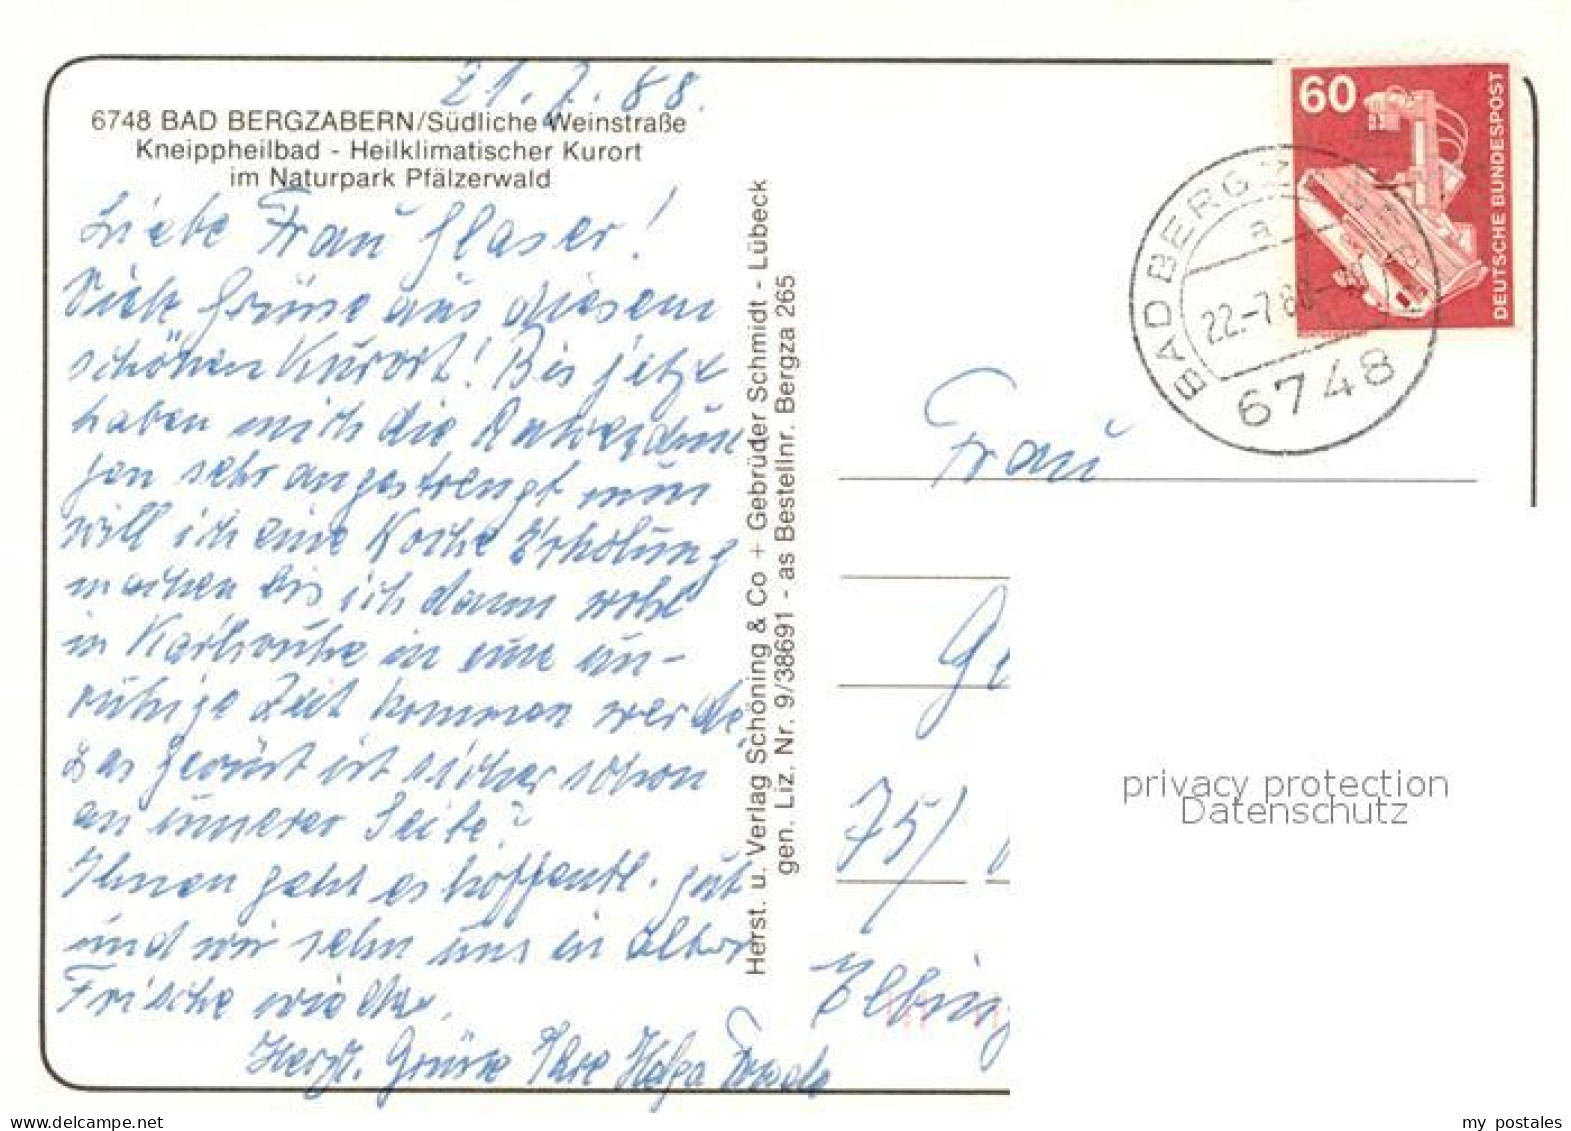 21.7.88.
6748 BAD BERGZABERN/Südliche Weinstraße
Kneippheilbad - Heilklimatischer Kurort
im Naturpark Pfälzerwald
Liebe Frau Glaser!
Viele Grüße aus diesem
schönen Kurort! Bis jetzt
haben mich die Anwendun
gen sehr angestrengt nun
will ich eine Woche Erholung
machen bis ich dann wohl
in Karlsruhe in eine un-
ruhige Zeit kommen werde.
Das Gerüst ist sicher schon
an unserer Seite?
Ihnen geht es hoffentl. gut
und wir sehn uns in alter
Frische wieder.
Herzl. Grüße Ihre Helga
Herst. u. Verlag Schöning & Co + Gebrüder Schmidt - Lübeck
gen. Liz. Nr. 9/38691 - as Bestellnr. Bergza 265
60
DEUTSCHE BUNDESPOST
BAD BERGZABERN
a
22.-7.88
6748
Frau
75/
Elbing
privacy protection
Datenschutz
www.delcampe.net
my_postales